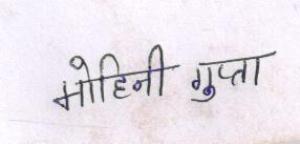 मोहिनी गुप्ता